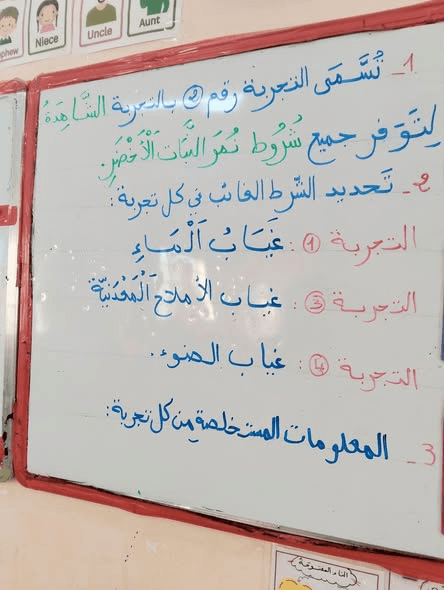 Niece
Uncle
Aunt
1- تُسَمَّى التجربة رقم ② بالتجربة الشَّاهِدَةُ
لِتَوَفر جميع شُرُوط نُمو النَّبَات الْأَخْضَرِ.
2- تَحديد الشّرط الغائب في كل تجربة:
التجربة ①: غِيَابُ الْمَاءِ
التجربة ③: غياب الأملاح الْمَعْدَنِيَّة
التجربة ④: غياب الضوء.
3- المعلومات المستخلصة من كل تجربة: